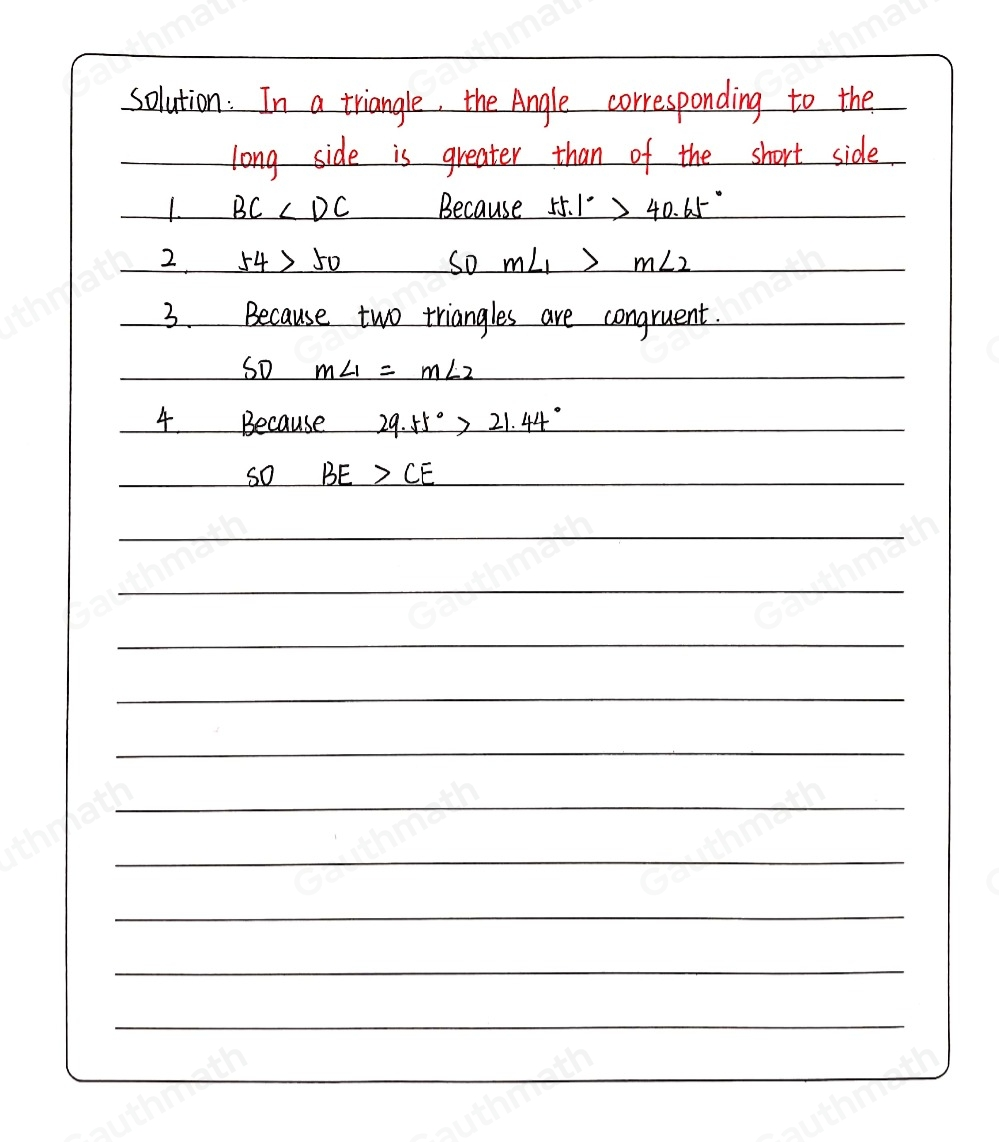 Solution: In a triangle, the Angle corresponding to the
long side is greater than of the short side.
1. BC < DC Because 55.1° > 40.65°
2. 54 > 50 SO m∠1 > m∠2
3. Because two triangles are congruent.
SO m∠1 = m∠2
4. Because 29.55° > 21.44°
SO BE > CE
Gauthmath